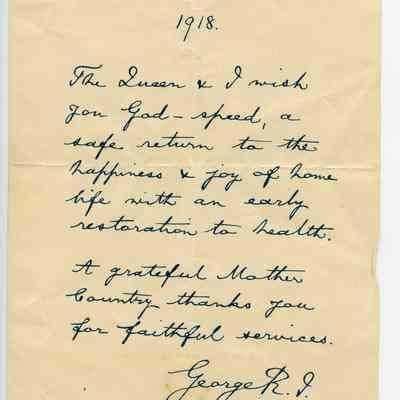 1918.
The Queen & I wish
you God-speed, a
safe return to the
happiness & joy of home
life with an early
restoration to health.
A grateful Mother
Country thanks you
for faithful services.
George R.I.